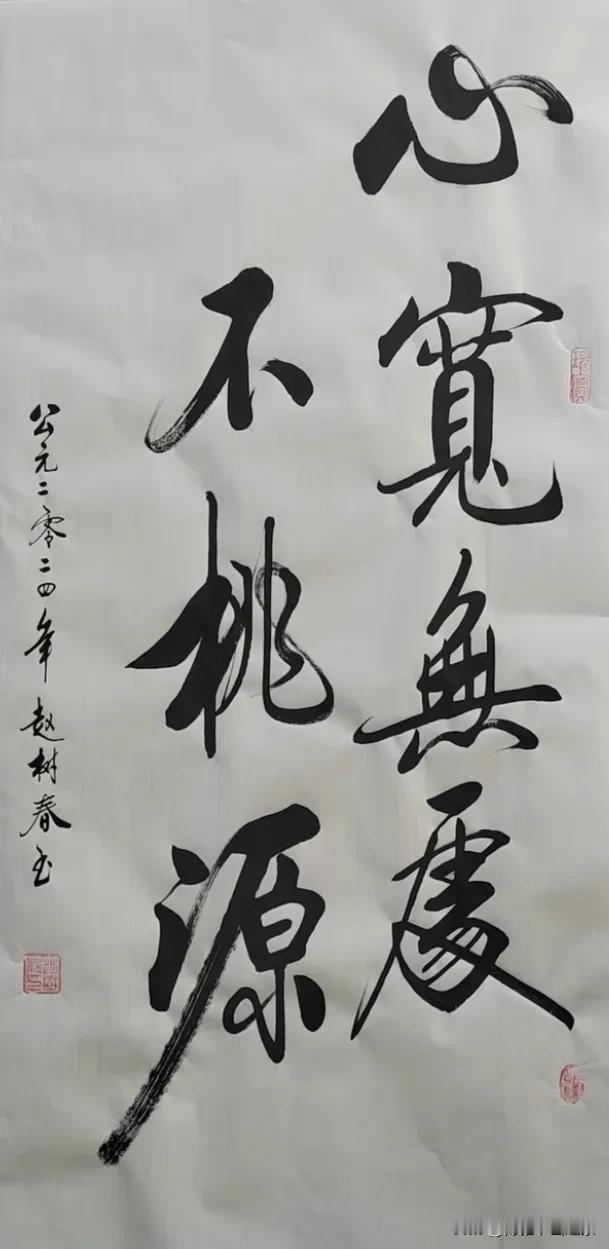 心寬無處
不桃源
公元二零二四年 赵树春书